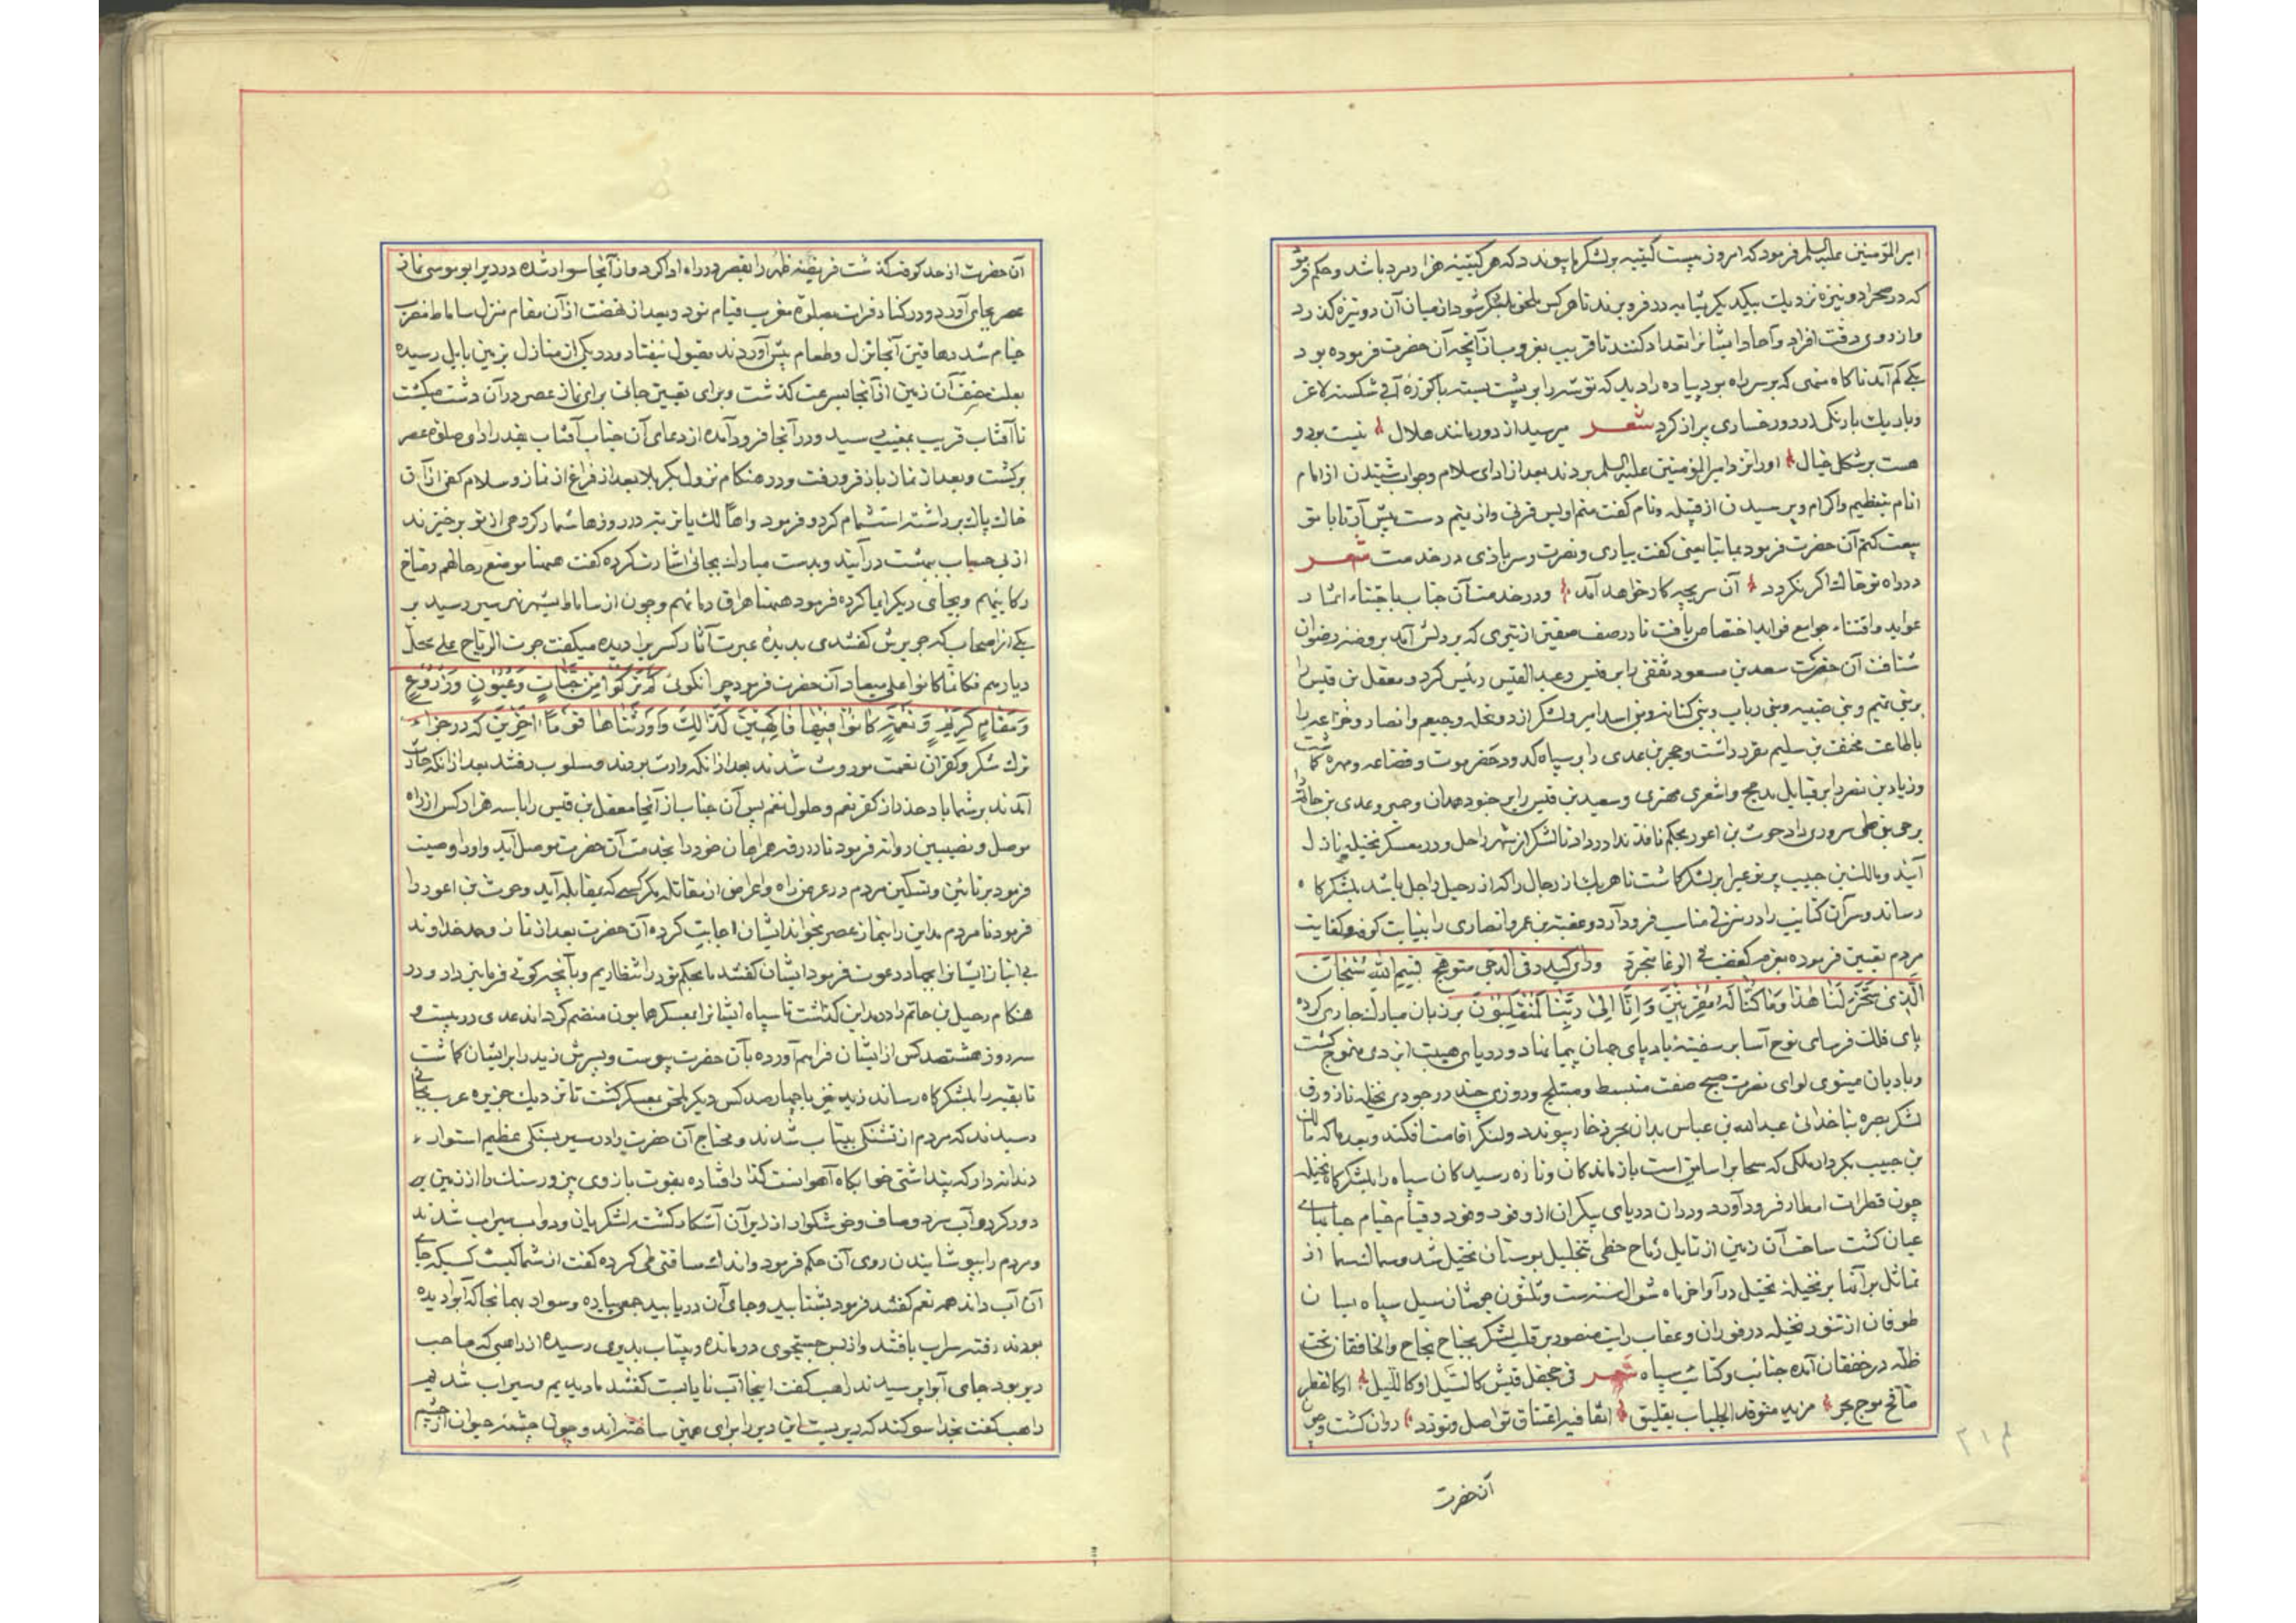 امیر المؤمنین علیه السلم فرمود که امروز بیست کتیبه بر لشکر ما پیوندد که هر کتیبه هزار مرد باشد و حکم فرمود
که در صحرا دو نیزه نزدیک بیکدیکر بمثابه در فرو برند تا هر کس ملحق بلشکر شود از میان آن دو نیزه کذرد
و از روی دقت افراد و آحاد ایشانرا تعداد کنند تا قریب بغروب از آنچه آن حضرت فرموده بود
یکی کم آمد ناکاه شخصی که بر سر راه بود پیاده را دید که توشه را بر پشت بسته با کوزه آبی شکسته لاغر
و باریک با رنکی زرد و رخساری پر از کرد شعر میرسید از دور مانند هلال نیست بود و
هست بر شکل خیال او را نزد امیر المؤمنین علیه السلم بردند بعد از ادای سلام و جواب شنیدن از امام
انام بتعظیم و اکرام و پرسیدن از قبیله و نام کفت منم اویس قرنی و از یتیم دست پیش آر تا با تو
بیعت کنم آن حضرت فرمود بما تبایعنی کفت بیاری و نصرت و سر بازی در خدمت شعر
در راه تو خاک اکر نکردد آن سر بچه کار خواهد آمد و در خدمت آن جناب باجتناء اثمار
عواید و اقتناء جوامع فواید اختصاص یافت تا در صف صفین از تیری که بر دلش آمد بروضه رضوان
شتافت آن حضرت سعد بن مسعود ثقفی را بر قیس و عبد القیس رئیس کرد و معقل بن قیس را
بر بنی تمیم و بنی ضبه و بنی رباب و بنی کنانه و بنی اسد امیر و لشکر ازد و بجیله و خثعم و انصار و خزاعه را
باطاعت مخنف بن سلیم مقرر داشت و حجر بن عدی را بر سپاه کنده و حضرموت و قضاعه و مهره کماشت
و زیاد بن نضر را بر قبایل مذحج و اشعری مهتری و سعید بن قیس را بر جنود همدان و حمیر و عدی بن حاتم را
بر حی بنی طی سروری داد حرث بن اعور بحکم نافذ ندا در داد تا لشکر از شهر راحل و در معسکر نخیله نازل
آیند و مالک بن حبیب یربوعی را بر لشکر کماشت تا هر یک از رجال را که از رحیل راجل باشد بلشکرکاه
رساند و سران کتایب را در منزلی مناسب فرود آرد و عقبة بن عمرو انصاری را بنیابت کوفه و کفایت
مردم تعیین فرموده بعزم کعضب فی الوغا متجرد و رای کبدر فی الدجی متوهج فبسم الله سُبْحَانَ
الَّذِی سَخَّرَ لَنَا هٰذَا وَمَا کُنَّا لَهُ مُقْرِنِینَ وَ اِنَّا اِلٰی رَبِّنَا لَمُنْقَلِبُونَ بر زبان مبارک جاری کرده
پای فلک فرسای نوح آسا بر سفینه بادپای جهان پیما نهاد و دریای هیبت ایزدی متموج کشت
و بادبان مینوی لوای نصرت صبح صفت منبسط و متبلج و روزی چند در جودی نخیله تا زورق
لشکر بصره بناخدائی عبدالله بن عباس بدان بحر ذخار پیوندد و لنکر اقامت افکند و بعد ما که مالک
بن حبیب بکردار ملکی که سحابرا سایق است بازماندکان و تازه رسیدکان سپاه را بلشکرکاه نخیله
چون قطرات امطار فرود آورد و در آن دریای بیکران از وفود وفود و قیام خیام حبابهای
عیان کشت ساحت آن زمین از تمایل رماح خطی بتخلیل بوستان نخیل شد و مسالک سما از
تماثل برانها بر نخیله نخیل در آواخر ماه شوال سنه ست و ثلثون جوشان سیل سپاه بسان
طوفان از تنور نخیله در فوران و عقاب رایت منصور بر قلب لشکر بجناح نجاح و الخافقان تحت
ظله در خفقان آمده جنائب و کتائب سپاه شعر فی جحفل قتیش کالسیل او کاللیل او کالقطر
صافح موج بحر مزید متوقد الجلباب یفلیق اتفا فیر اعتناق تواصل و تودد روان کشت و چون
آن حضرت
آن حضرت از حد کوفه کذشت فریضه ظهر را بقصر در راه ادا کرد و از آنجا سوار شده در دیر ابو موسی نماز
عصر بجای آورد و در کنار فرات بصلوة مغرب قیام نمود و بعد از نهضت از آن مقام منزل ساباط مضرب
خیام شد دهاقین آنجا نزل و طعام پیش آوردند مقبول نیفتاد و در یکی از منازل بزمین بابل رسیده
بعلت خسف آن زمین از آنجا بسرعت کذشت و برای تعیین جائی برای نماز عصر در آن دشت میکشت
تا آفتاب قریب بمغیب رسید و در آنجا فرود آمده از دعای آن جناب آفتاب بقدر ادای صلوة عصر
برکشت و بعد از نماز باز فرو رفت و در هنکام نزول بکربلا بعد از فراغ از نماز و سلام کفی از آن
خاک پاک برداشته استشمام کرد و فرمود واهاً لک یا تربة در روزها شمار کردهی از تو برخیزند
از بی حساب ببهشت درآیند و بدست مبارک بجائی اشارت کرده کفت ههنا موضع رحالهم و مناخ
رکابهم و بجای دیکر ایما کرده فرمود ههنا مهراق دمائهم و چون از ساباط بشهر نهرسیر رسید بر
یکی از اصحاب که جریرش کفتندی بدیده عبرت آثار کسری را دیده میکفت جرت الریاح علی محل
دیارهم فکانما کانوا علی میعاد آن حضرت فرمود چرا نکوئی کَمْ تَرَکُوا مِنْ جَنَّاتٍ وَعُیُونٍ وَزُرُوعٍ
وَمَقَامٍ کَرِیمٍ وَ نَعْمَةٍ کَانُوا فِیهَا فَاکِهِینَ کَذٰلِکَ وَاَوْرَثْنَاهَا قَوْمًا آخَرِینَ که در جزاء
ترک شکر و کفران نعمت موروث شدند بعد از انکه وارث بودند و مسلوب رفتند بعد از انکه حارث
آمدند بر شما باد حذر از کفر نعم و حلول نقم پس آن جناب از آنجا معقل بن قیس را با سه هزار کس از راه
موصل و نصیبین روانه فرمود تا در رقه همراهان خود را بخدمت آن حضرت موصل آید و او را وصیت
فرمود بر تامین و تسکین مردم در عرض راه و اعراض از مقاتله مکر کسی که بمقابله آید و حرث بن اعور را
فرمود تا مردم مداین را بنماز عصر بخواند ایشان اجابت کرده آن حضرت بعد از نماز و حمد خداوند
بی انباز ایشانرا بجهاد دعوت فرمود ایشان کفتند ما بحکم تو در انتظاریم و بآنچه کوئی فرمانبردار و در
هنکام رحیل بن حاتم را در مداین کذاشت تا سپاه ایشانرا بمعسکر همایون منضم کرداند عدی در بیست و
سه روز هشتصد کس از ایشان فراهم آورده بآن حضرت پیوست و پسرش زید را بر ایشان کماشت
تا بقیه را بلشکرکاه رساند زید نیز با چهارصد کس دیکر ملحق بمعسکر کشت تا نزدیک جزیره عرب بجائی
رسیدند که مردم از تشنکی بیتاب شدند و محتاج آن حضرت را در مسیر بسنکی عظیم استوار
دندانه دار که پنداشتی خوابکاه آهو است کذار افتاده بقوت بازوی پرزور سنک را از زمین بر
دور کرد و آب سرد و صاف و خوشکوار از زیر آن آشکار کشت لشکریان و دواب سیراب شدند
و مردم را بپوشانیدن روی آن حکم فرمود و اندک مسافتی طی کرده کفت از شما کیست کسیکه جای
آن آب داند همه نعم کفتند فرمود بشتابید و جای آن دریابید جمعی پیاده و سوار بهمانجا که آبرا دیده
بودند رفته سراب یافتند و از بس جستجوی درمانده و بیتاب بدیری رسیده از راهبی که صاحب
دیر بود جای آبرا پرسیدند راهب کفت اینجا آب نایابست کفتند ما دیدیم و سیراب شدیم
راهب کفت بخدا سوکند که دیریست این دیر را برای همین ساخته‌اند و چون چشمه حیوان از چشم